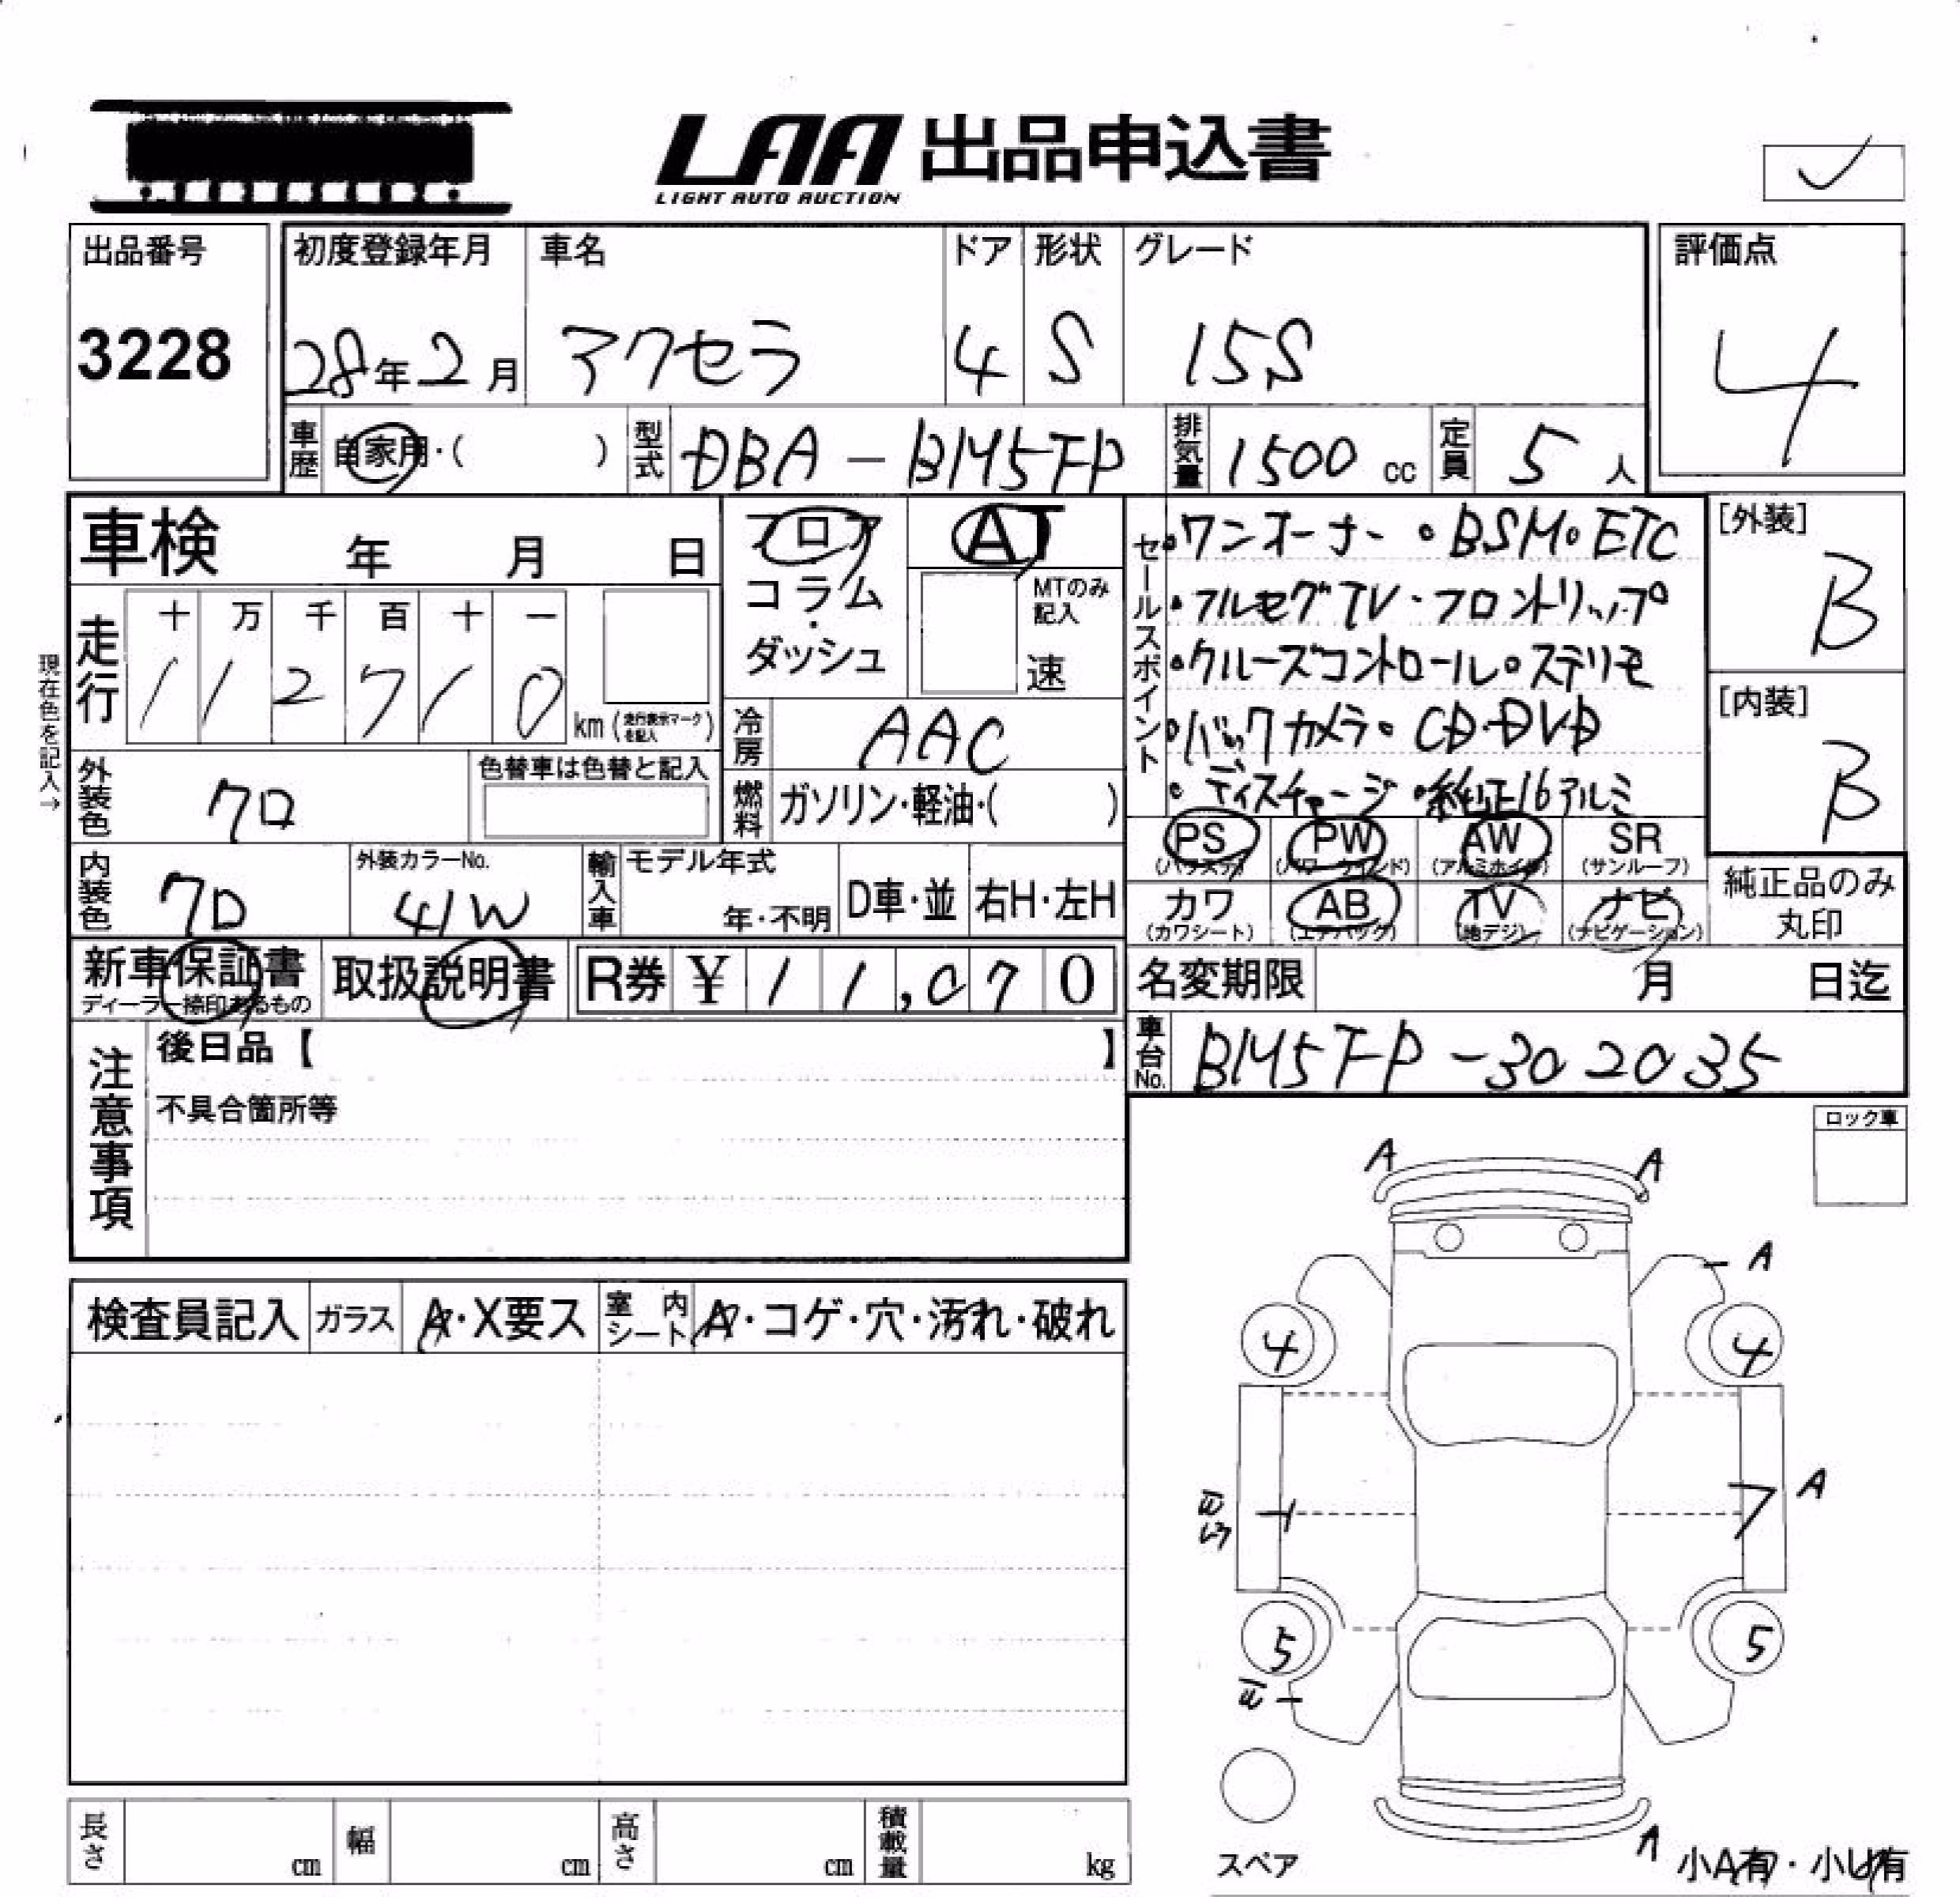 LAA 出品申込書
LIGHT AUTO AUCTION
出品番号 3228
初度登録年月 28年2月
車名 アクセラ
ドア 4
形状 S
グレード 15S
評価点 4
車歴 自家用・( )
型式 DBA-BM5FP
排気量 1500 cc
定員 5 人
車検 年 月 日
フロア
コラム・
ダッシュ
AT
MTのみ記入
速
走行 十 万 千 百 十 一
112710 km (走行表示マークを記入)
現在色を記入→
冷房 AAC
燃料 ガソリン・軽油・( )
外装色 クロ
色替車は色替と記入
内装色 クロ
外装カラーNo. 41W
輸入車 モデル年式 年・不明 D車・並 右H・左H
セールスポイント
・ワンオーナー ・BSM・ETC
・フルセグTV・フロントリップ
・クルーズコントロール・ステリモ
・バックカメラ・CD・DVD
・ディスチャージ・純正16アルミ
[外装] B
[内装] B
PS (パワステ) PW (パワーウィンド) AW (アルミホイル) SR (サンルーフ)
カワ (カワシート) AB (エアバック) TV (地デジ) ナビ (ナビゲーション)
純正品のみ丸印
新車保証書
ディーラー捺印あるもの
取扱説明書
R券 ¥11,070
名変期限 月 日迄
車台No. BM5FP-302035
注意事項
後日品【 】
不具合箇所等
ロック車
検査員記入 ガラス A・X要ス 室内シート A・コゲ・穴・汚れ・破れ
A A
A
4 4
A
5 5
A
スペア
小A有・小U有
長さ cm 幅 cm 高さ cm 積載量 kg